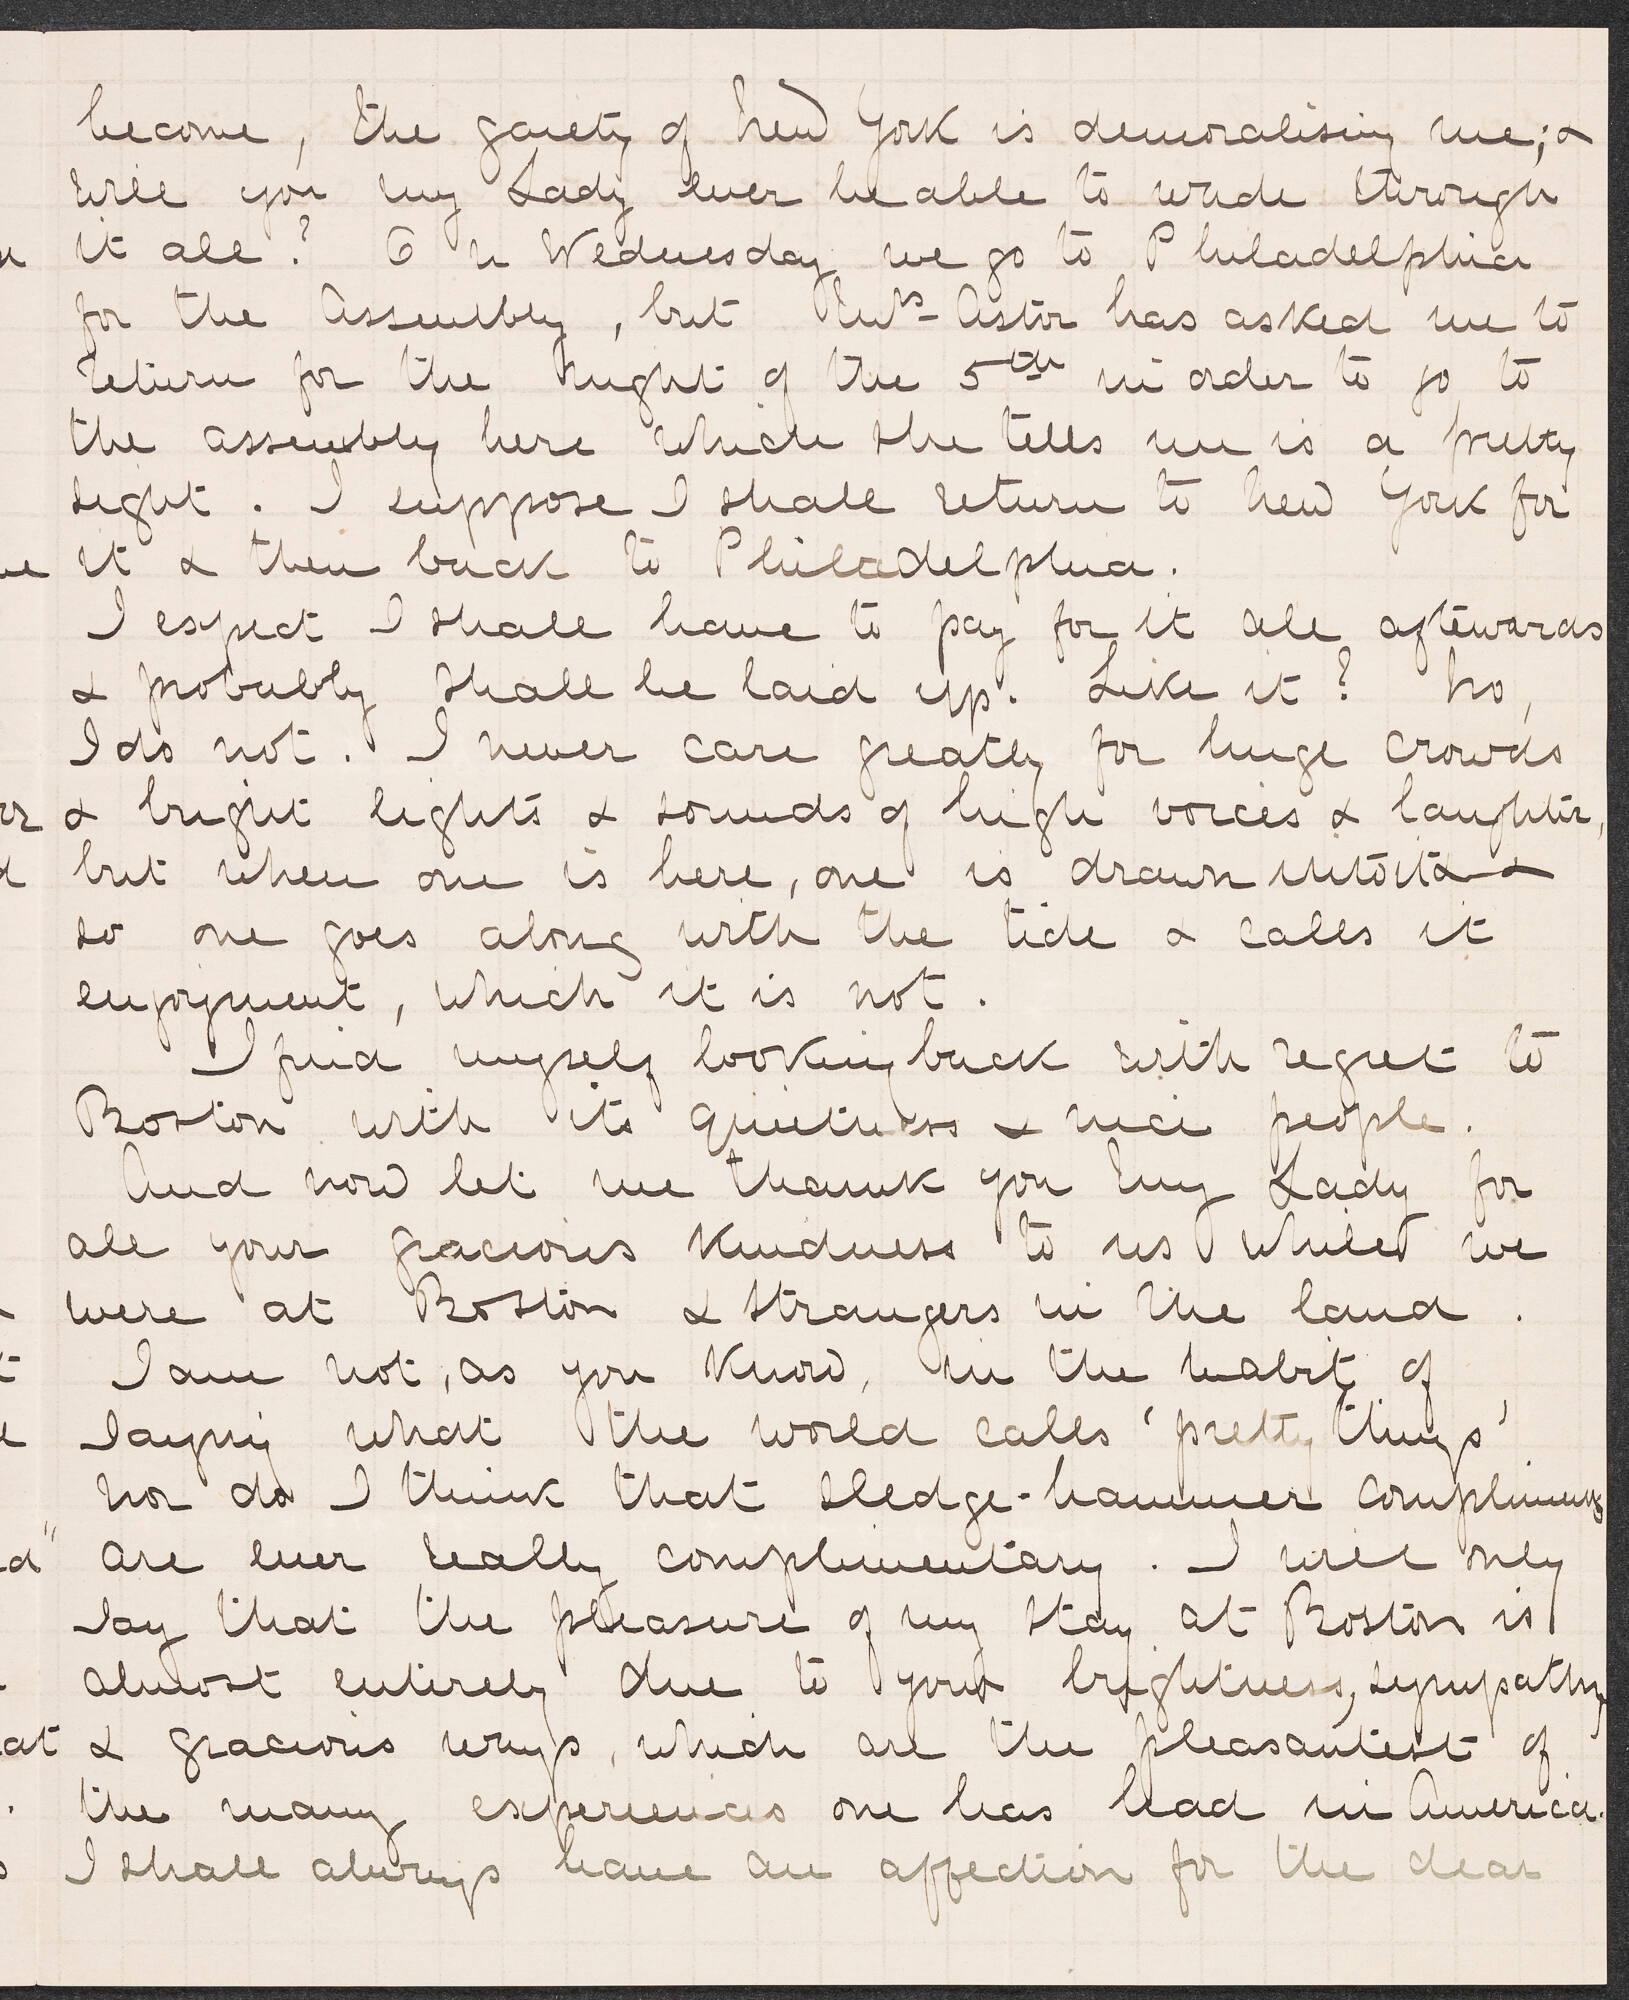 become, the gaiety of New York is demoralising me; &
will you my Lady ever be able to wade through
it all? On Wednesday we go to Philadelphia
for the Assembly, but Mrs Astor has asked me to
return for the night of the 5th in order to go to
the assembly here which she tells me is a pretty
sight. I suppose I shall return to New York for
it & then back to Philadelphia.
I expect I shall have to pay for it all aftewards
& probably shall be laid up. Like it? No,
I do not. I never care greatly for huge crowds
& bright lights & sounds of high voices & laughter,
but when one is here, one is drawn into it &
so one goes along with the tide & calls it
enjoyment, which it is not.
I find myself looking back with regret to
Boston with its quietness & nice people.
And now let me thank you my Lady for
all your gracious kindness to us while we
were at Boston & strangers in the land.
I am not, as you know, in the habit of
saying what the world calls 'pretty things'
nor do I think that sledge-hammer compliments
are ever really complimentary. I will only
say that the pleasure of my stay at Boston is
almost entirely due to your brightness, sympathy
& gracious ways, which are the pleasantest of
the many experiences one has had in America.
I shall always have an affection for the dear